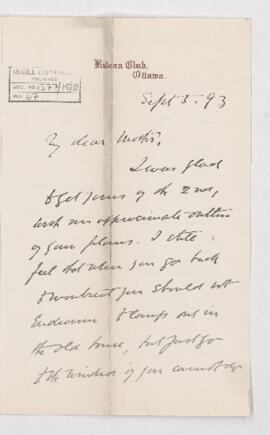 McGILL UNIVERSITY
ARCHIVES
ACC. NO. 1377/15
REF. 67
Rideau Club,
Ottawa.
Sept 5. 93
My dear Mother,
I was glad
to get yours of the 2nd,
with an approximate outline
of your plans. I still
feel that when you go back
to Montreal you should not
Endeavour to camp out in
the old house, but just go
to the Windsor if you cannot